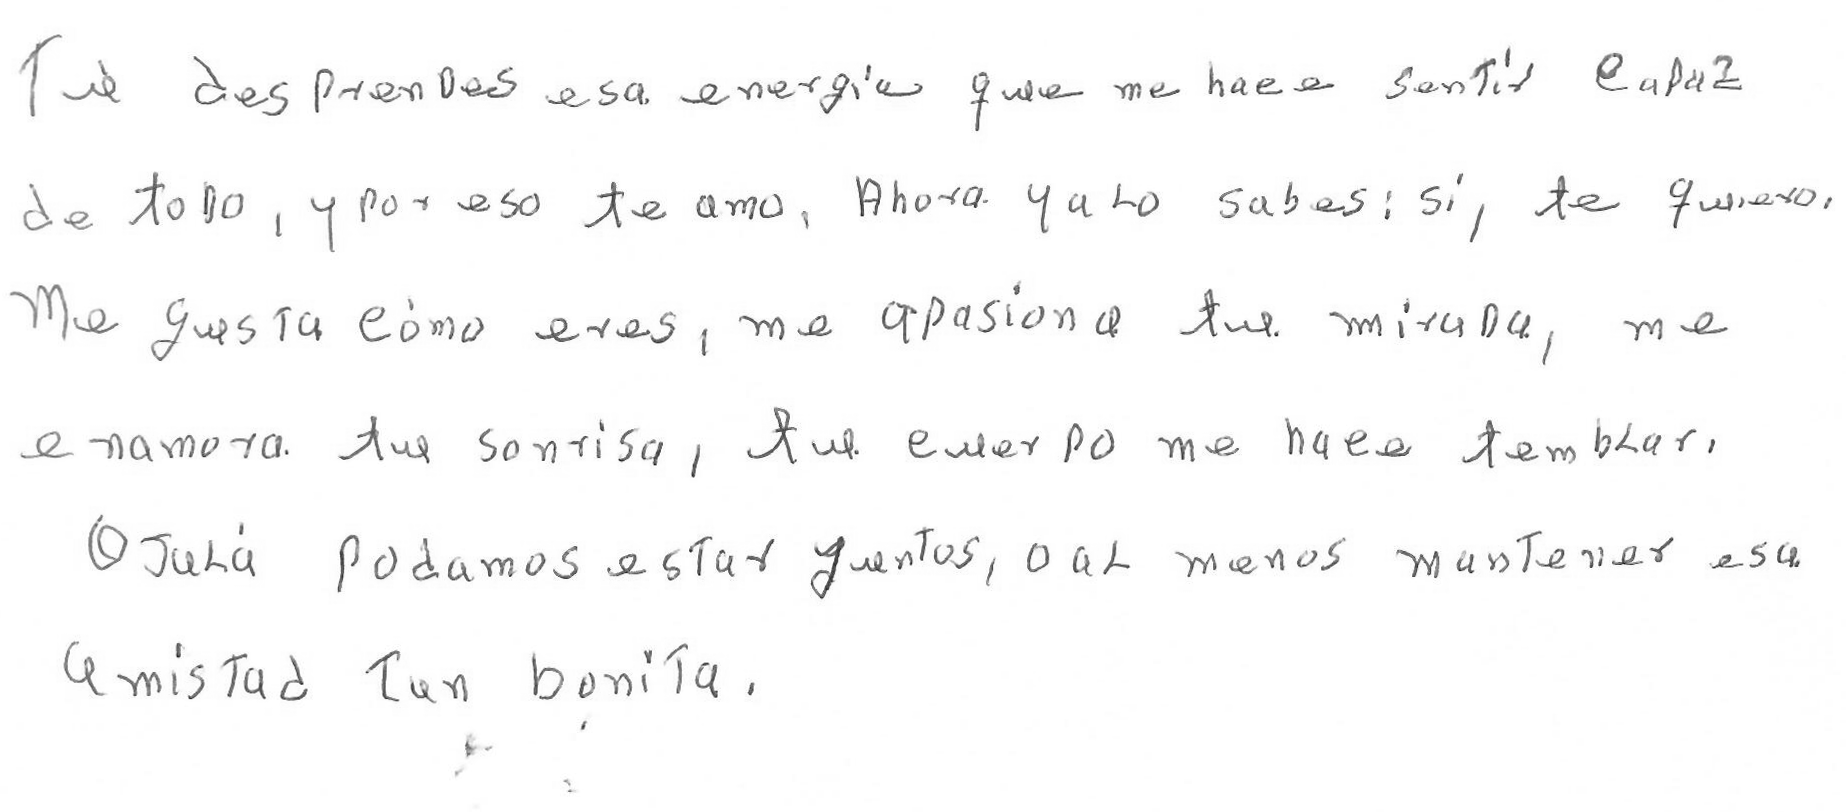 Tú desprendes esa energía que me hace sentir capaz
de todo, y por eso te amo. Ahora ya lo sabes: sí, te quiero.
Me gusta cómo eres, me apasiona tu mirada, me
enamora tu sonrisa, tu cuerpo me hace temblar.
Ojalá podamos estar juntos, o al menos mantener esa
amistad tan bonita.